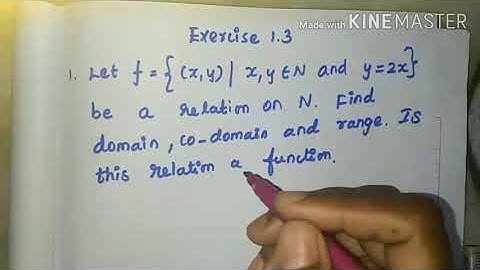 Made with KINEMASTER
Exercise 1.3
1. Let f = { (x,y) | x,y ∈ N and y=2x}
be a relation on N. Find
domain, co-domain and range. Is
this relation a function.